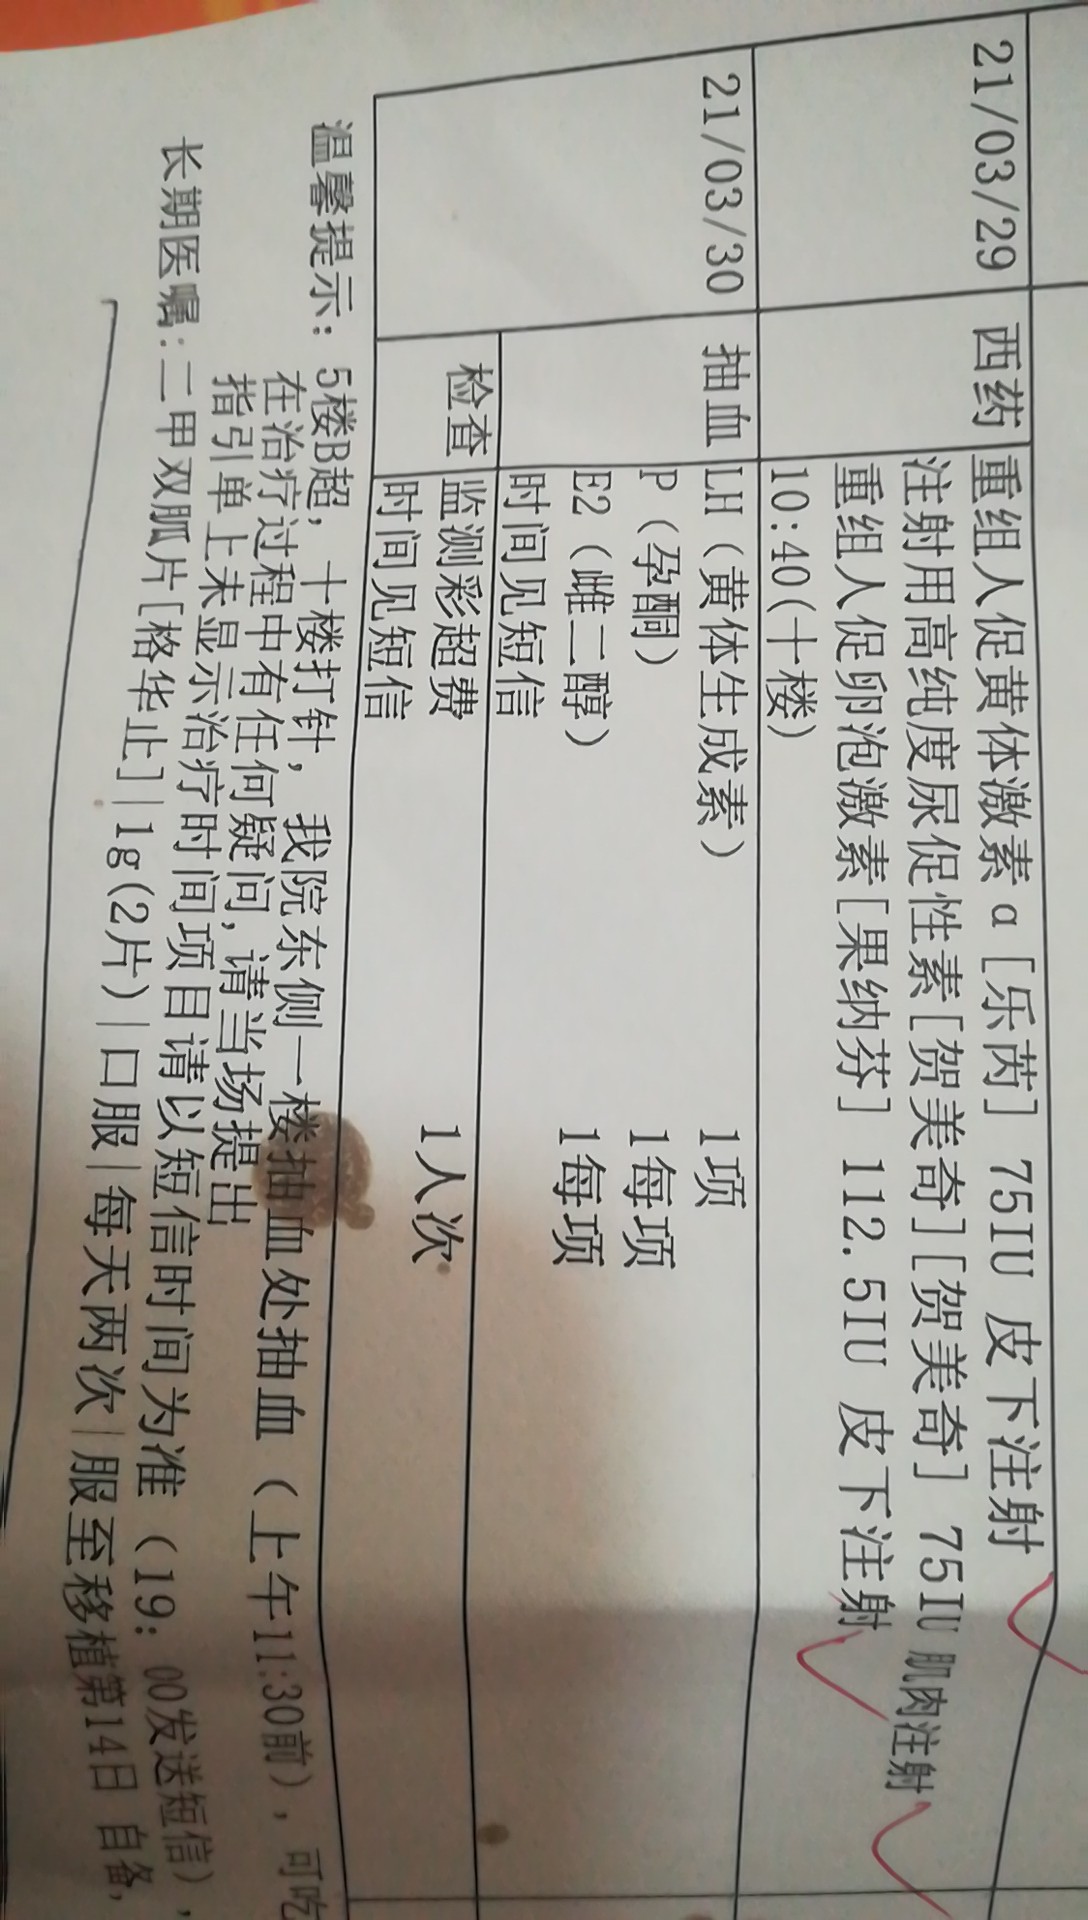 21/03/29 西药 重组人促黄体激素α[乐芮] 75IU 皮下注射
注射用高纯度尿促性素[贺美奇][贺美奇] 75IU 肌肉注射
重组人促卵泡激素[果纳芬] 112.5IU 皮下注射
10:40(十楼)
21/03/30 抽血 LH(黄体生成素) 1项
P(孕酮) 1每项
E2(雌二醇) 1每项
时间见短信
检查 监测彩超费 1人次
时间见短信
温馨提示: 5楼B超, 十楼打针, 我院东侧一楼抽血处抽血(上午11:30前), 可吃
在治疗过程中有任何疑问, 请当场提出
指引单上未显示治疗时间项目请以短信时间为准(19:00发送短信),
长期医嘱:二甲双胍片[格华止]|1g(2片)|口服|每天两次|服至移植第14日 自备,